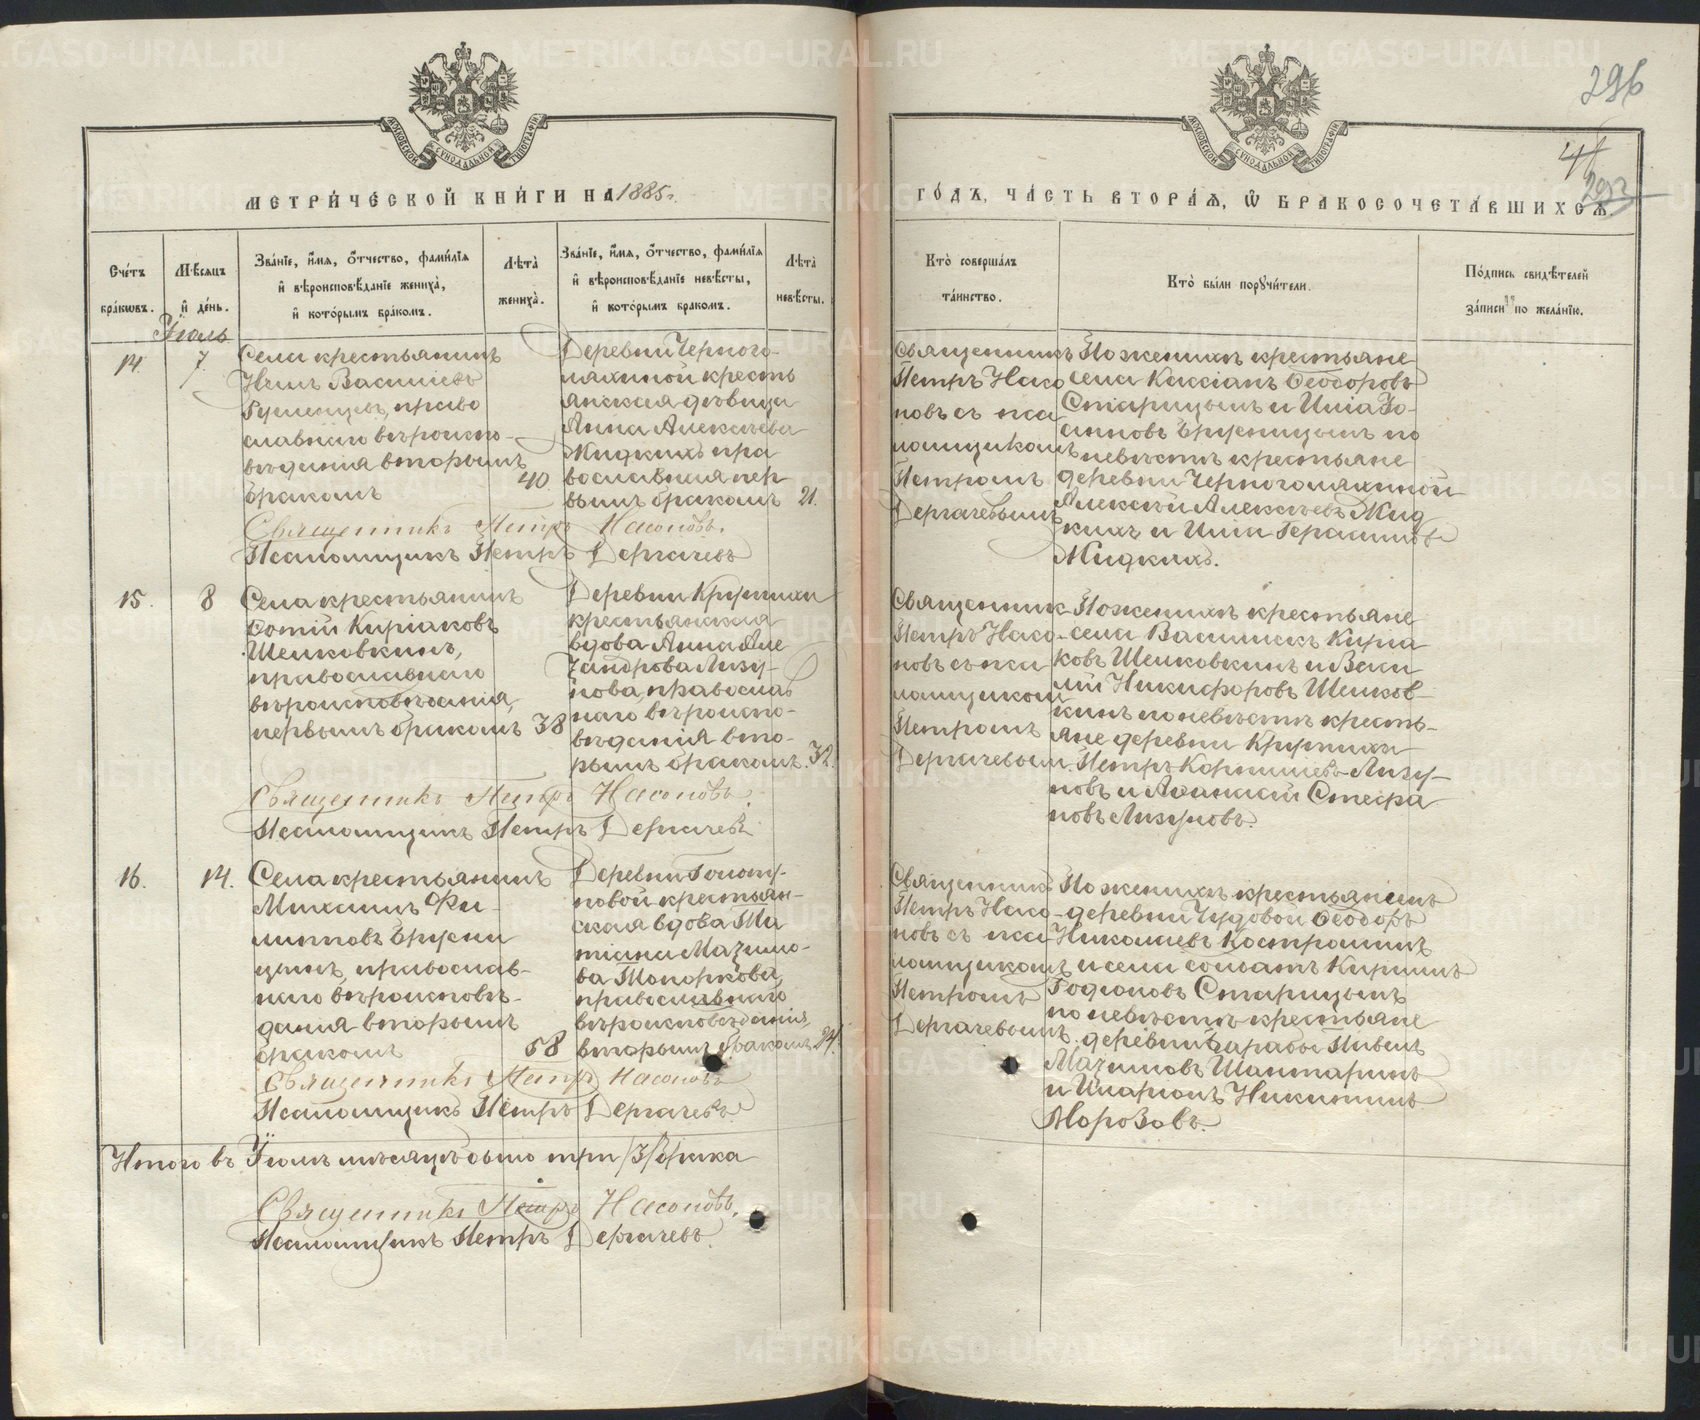 296
41
293
МЕТРИ́ЧЕСКОЙ КНИ́ГИ НА 1885 г.
ГО́ДЪ, ЧА́СТЬ ВТОРА́Я, Ѡ҆ БРАКОСОЧЕТА́ВШИХСЯ.
Сче́тъ бра́ковъ.
Мѣ́сяцъ и҆ де́нь.
Зва́нїе, и҆́мя, о҆́тчество, фами́лїя
и҆ вѣроисповѣ́данїе жениха̀,
и҆ кото́рымъ бра́комъ.
Лѣта̀ жениха̀.
Зва́нїе, и҆́мя, о҆́тчество, фами́лїя
и҆ вѣроисповѣ́данїе невѣ́сты,
и҆ кото́рымъ бракомъ.
Лѣта̀ невѣ́сты.
Кто̀ соверша́лъ та́инство.
Кто̀ бы́ли порꙋчи́тели.
По́дпись свидѣ́телей
за́писи по жела́нїю.
Іюль
14.
7.
Села крестьянинъ
Василіевъ
Румянцевъ, право
славнаго вѣроиспо-
вѣданія вторымъ
бракомъ
40
Деревни Черного-
ляхиной кресть
янская дѣвица
Анна Алексѣева
Жидкихъ пра
вославная пер
вымъ бракомъ
21.
Священникъ
Петръ Насо
новъ съ пса
ломщикомъ
Петромъ
Дергачевымъ
По женихѣ крестьяне
села Кассіанъ Ѳеодоровъ
Старицынъ и Илія Іо-
анновъ Брусницынъ по
невѣстѣ крестьяне
деревни Черноголяхиной
Алексѣй Алексѣевъ Жид
кихъ и Илія Герасимовъ
Жидкихъ.
Священникъ Петръ Насоновъ.
Псаломщикъ Петръ Дергачевъ
15.
8
Села крестьянинъ
Фотій Киріаковъ
Шелковкинъ,
православнаго
вѣроисповѣданія,
первымъ бракомъ
38
Деревни Крутихи
крестьянская
вдова Анна Але
ксандрова Лизу-
нова, православ
наго вѣроиспо-
вѣданія вто-
рымъ бракомъ.
32.
Священник
Петръ Насо-
новъ съ пса
ломщиком
Петромъ
Дергачевым.
По женихѣ крестьяне
села Василискъ Кирїа
ковъ Шелковкинъ и Васи
лій Никифоровъ Шелков-
кинъ по невѣстѣ кресть-
яне деревни Крутихи
Петръ Корниліевъ Лизу-
новъ и Аѳанасій Стефа
новъ Лизуновъ.
Священникъ Петръ Насоновъ
Псаломщикъ Петръ Дергачевъ
16.
14.
Села крестьянинъ
Михаилъ Фи-
липповъ Брусни
цынъ, православ-
наго вѣроисповѣ-
данія вторымъ
бракомъ
58
Деревни Голоту-
новой крестьян-
ская вдова Та
тіана Маѯимо-
ва Топоркова,
православнаго
вѣроисповѣданія,
вторымъ бракомъ
Священникъ
Петръ Насо-
новъ съ пса
ломщикомъ
Петромъ
Дергачевымъ.
По женихѣ крестьянинъ
деревни Чудовой Ѳеодоръ
Николаевъ Костроминъ
и села солдатъ Кириллъ
Родіоновъ Старицынъ
по невѣстѣ крестьяне
деревни
Маѯимовъ Шантаринъ
и Иларіонъ Никитинъ
Морозовъ.
Священникъ Петръ Насоновъ
Псаломщикъ Петръ Дергачевъ
Итого въ Іюлѣ мѣсяцѣ было три /3/ брака
Священникъ Петръ Насоновъ.
Псаломщикъ Петръ Дергачевъ.